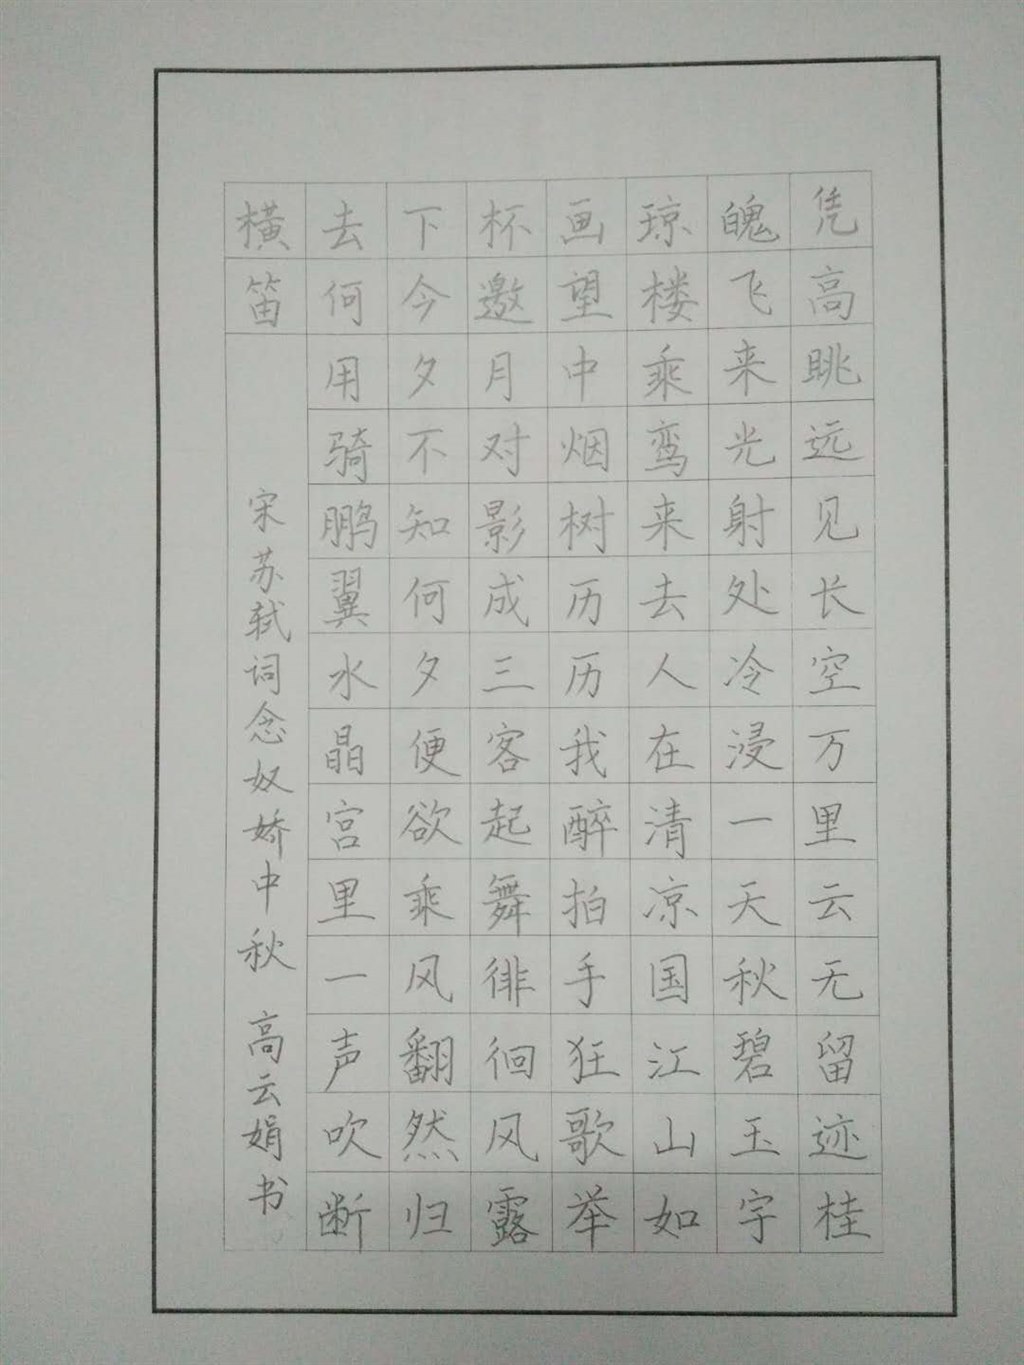 凭高眺远见长空万里云无留迹桂
魄飞来光射处冷浸一天秋碧玉宇
琼楼乘鸾来去人在清凉国江山如
画望中烟树历历我醉拍手狂歌举
杯邀月对影成三客起舞徘徊风露
下今夕不知何夕便欲乘风翻然归
去何用骑鹏翼水晶宫里一声吹断
横笛
宋苏轼词念奴娇中秋 高云娟书